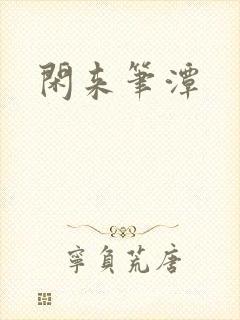 閑来筆潭
寧負荒唐